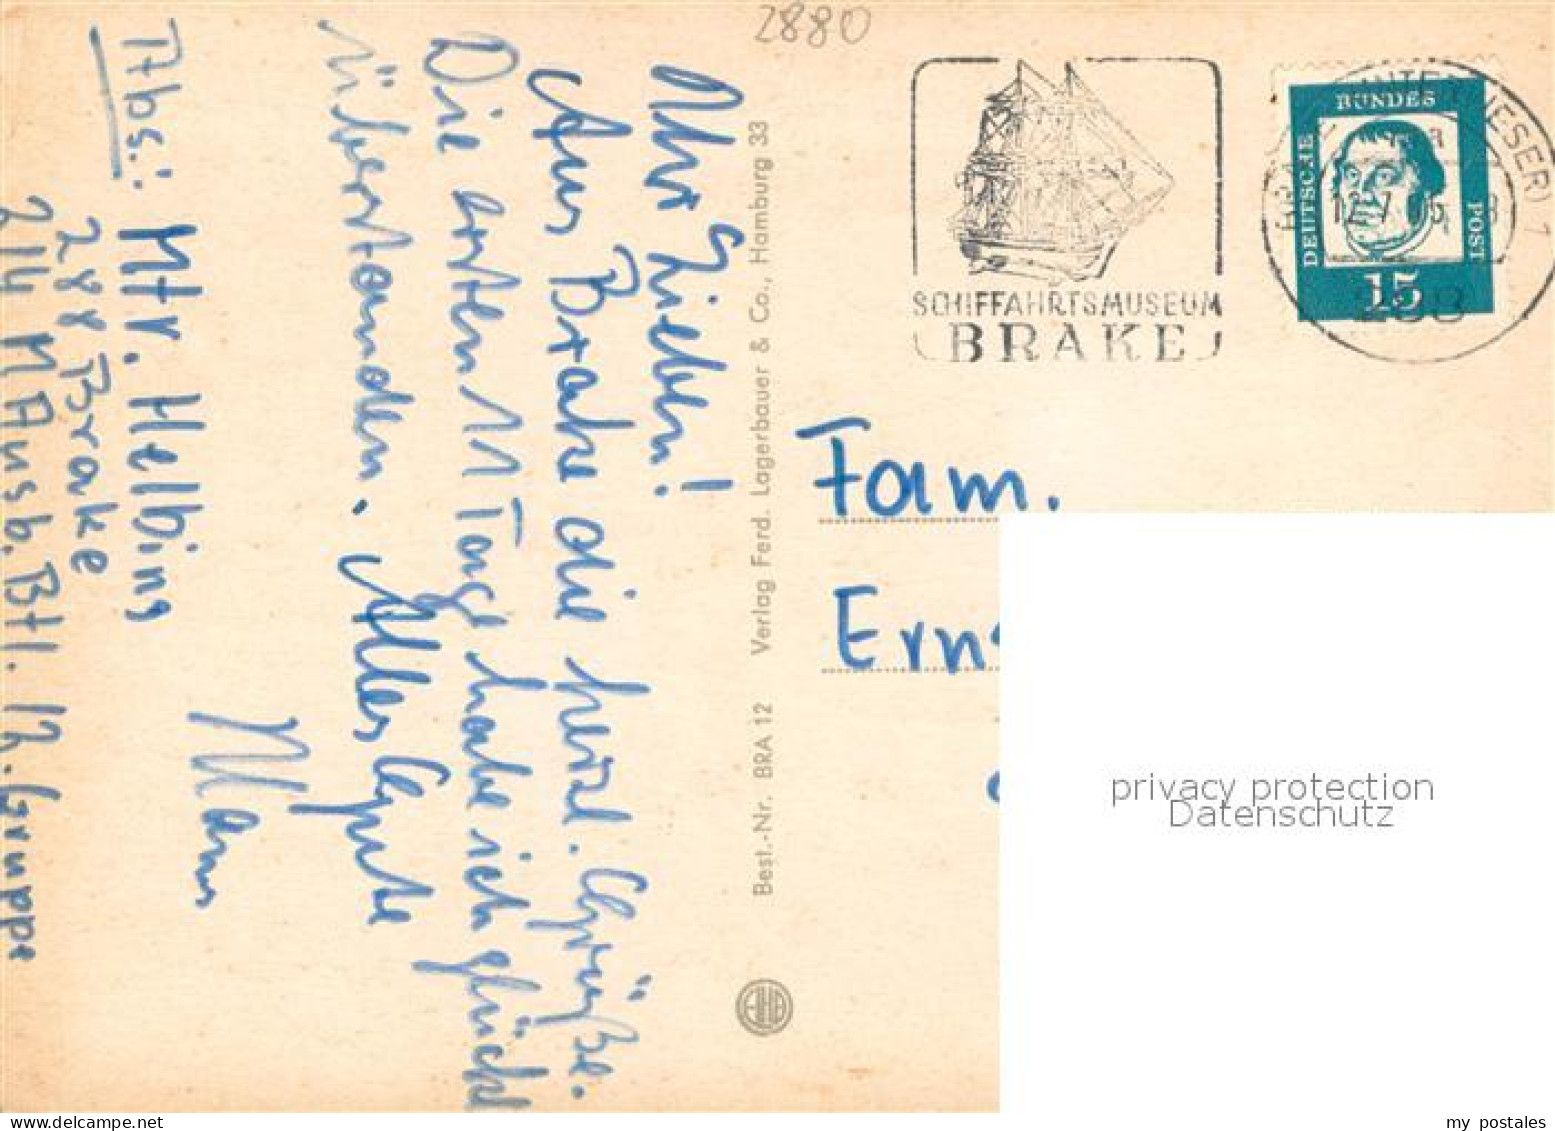 2880
SCHIFFAHRTSMUSEUM
BRAKE
DEUTSCHE
BUNDES
POST
15
Abs.: Mtr. Helbing
288 Brake
2/4 M Ausb. Btl. 12. Gruppe
Ihr Lieben!
Aus Brake die herzl. Grüße.
Die ersten 11 Tage habe ich glückl
überstanden. Alles Gute
Best.-Nr. BRA 12 Verlag Ferd. Lagerbauer & Co., Hamburg 33
Fam.
Ern
privacy protection
Datenschutz
my postales